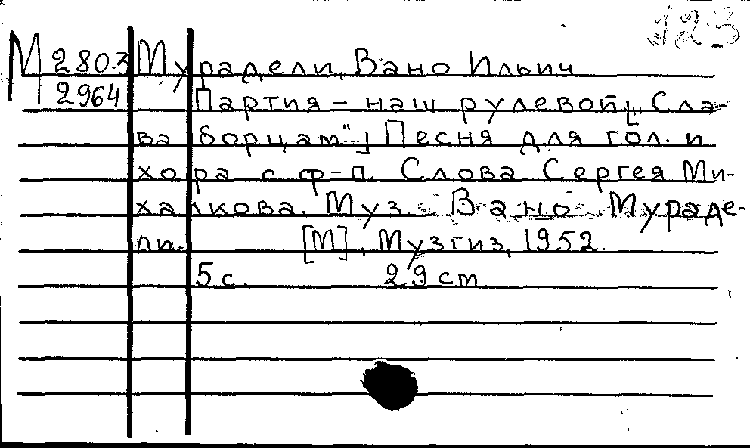 123
М 2803 Мурадели, Вано Ильич
2964 Партия – наш рулевой [„Сла-
ва борцам"] Песня для гол. и
хора с ф-п. Слова Сергея Ми-
халкова. Муз. Вано Мураде-
ли. [М], Музгиз, 1952.
5 с. 29 cm